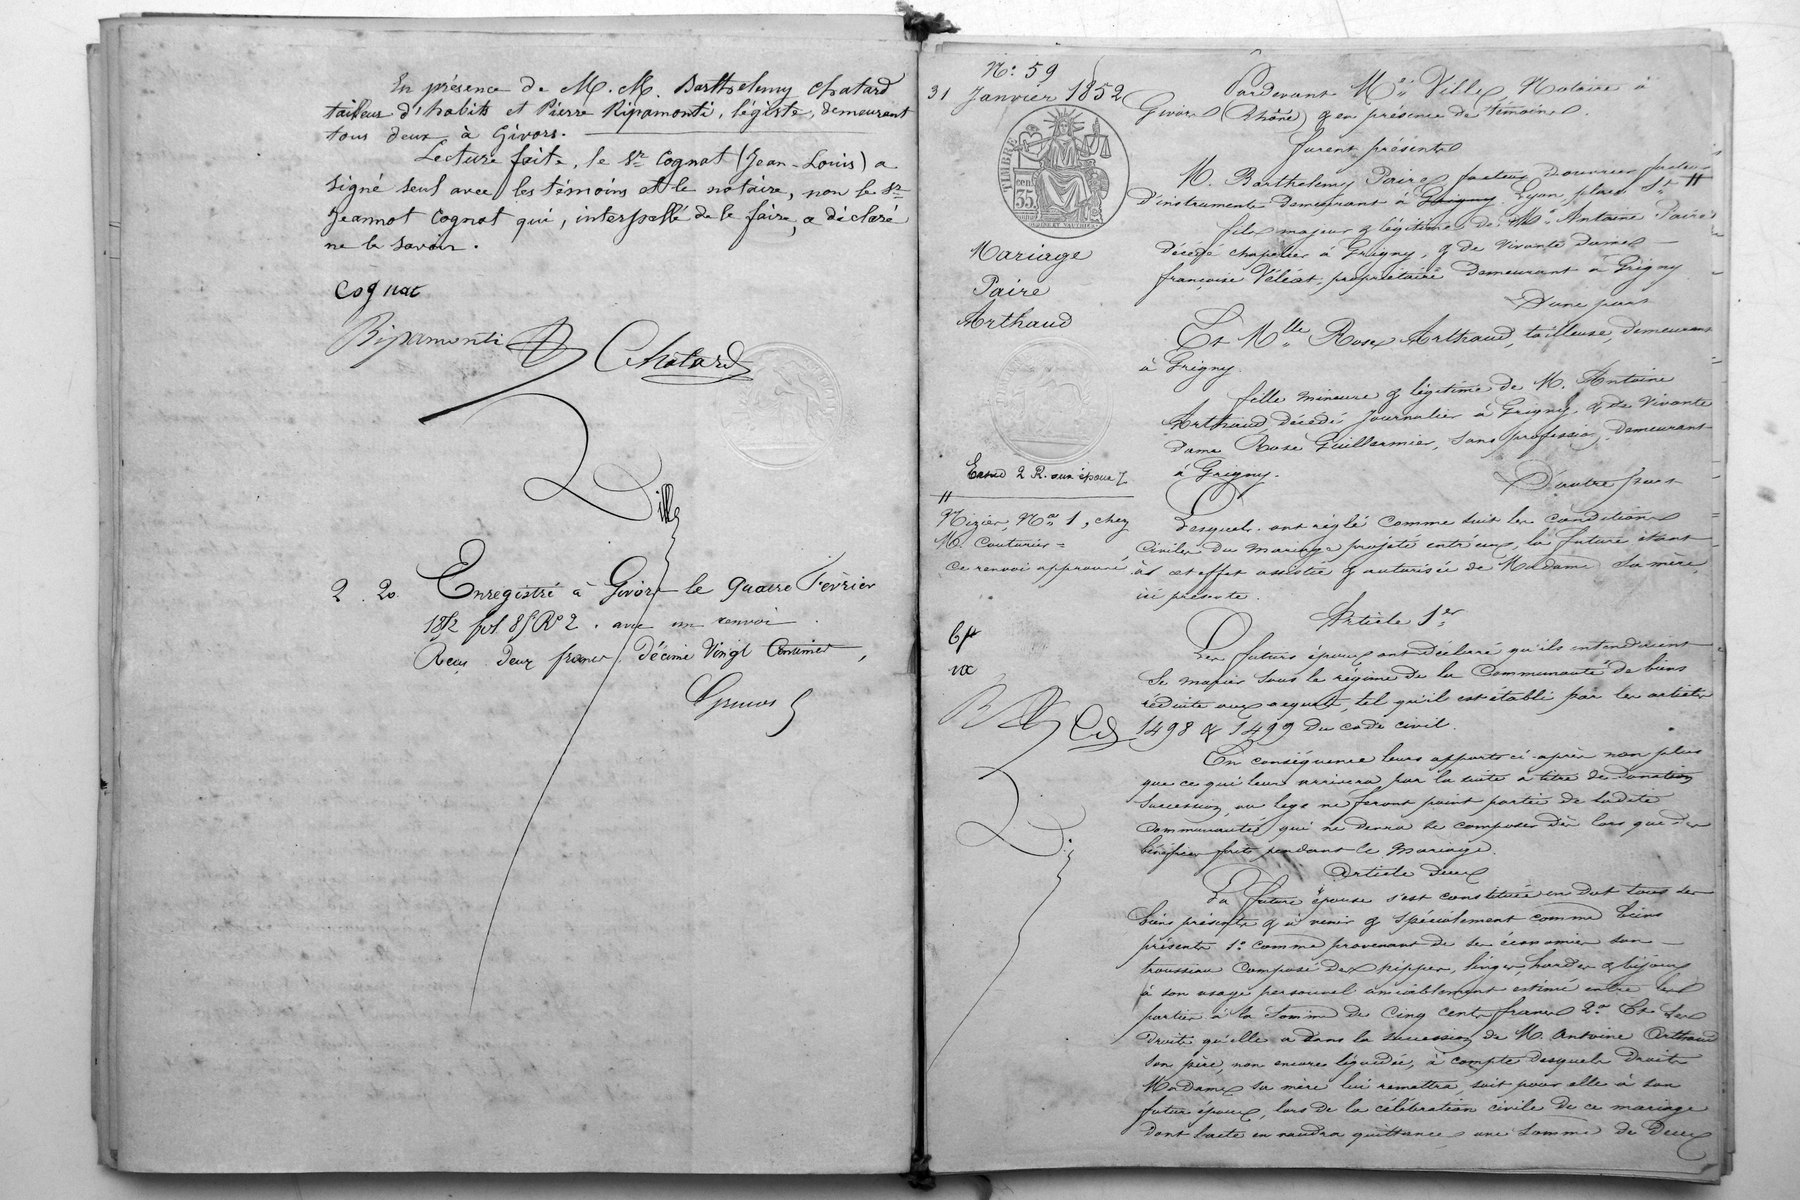 En présence de M. M. Barthelemy Chatard
tailleur d'habits et Pierre Ripamonti, légiste, demeurant
tous deux à Givors.
Lecture faite, le Sr Cognat (Jean-Louis) a
signé seul avec les témoins et le notaire, non le Sr
Jeannot Cognat qui, interpellé de le faire, a déclaré
ne le savoir.
Cognat
Ripamonti Chatard
Ville
2. 20 Enregistré à Givors le quatre Février
1852 fol. 85 Ro 2. avec un renvoi.
Reçu deux francs, décime vingt centimes,
No: 59
31 Janvier 1852
TIMBRE
cen. 35
Mariage
Paire
Arthaud
2 R. aux époux
"
Nizier, No 1, chez
M. Couturier =
Ce renvoi approuvé
Pardevant Me Ville, Notaire à
Givors (Rhône) & en présence de témoins.
Furent présents
M. Barthelemy Paire, facteur
D'instruments Demeurant à Grigny Lyon, place St "
fils majeur & légitime de M. Antoine Paire
décédé chapelier à Grigny, & de vivante dame
françoise Véléat, propriétaire demeurant à Grigny
D'une part
Et Mlle Rose Arthaud, tailleuse, demeurant
à Grigny.
fille mineure & légitime de M. Antoine
Arthaud, décédé journalier à Grigny, & de vivante
dame Rose Guillarmier, sans profession, demeurant
à Grigny.
D'autre part
Lesquels ont réglé comme suit les conditions
Civiles du mariage projeté entr'eux, la future étant
à cet effet assistée & autorisée de Madame sa mère,
ici présente.
Article 1er
Les futurs époux ont déclaré qu'ils entendaient
Se marier sous le régime de la Communauté de biens
réduite aux acquêts, tel qu'il est établi par les articles
1498 & 1499 du code civil.
En conséquence leurs apports ci-après non plus
que ce qui leur arrivera par la suite à titre de donation
Succession ou legs ne feront point partie de ladite
Communauté qui ne devra se composer dès lors que des
bénéfices faits pendant le mariage.
Article deux
La future épouse s'est constituée en dot tous ses
biens présents & à venir & spécialement comme biens
présents 1o comme provenant de ses économies son
trousseau composé de nippes, linges, hardes & bijoux
à son usage personnel amiablement estimé entre les
parties à la Somme de Cinq cents francs 2o Et les
Droits qu'elle a dans la succession de M. Antoine Arthaud
Son père, non encore liquidée, à compte desquels droits
Madame sa mère lui remettra, soit pour elle à son
futur époux, lors de la célébration civile de ce mariage
dont l'acte en vaudra quittance, une Somme de Deux